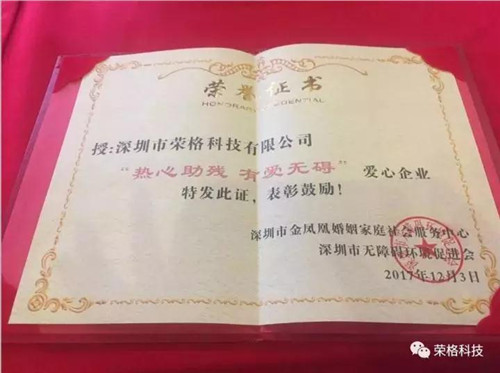 荣誉证书
HONORARY CREDENTIAL
授:深圳市荣格科技有限公司
“热心助残 有爱无碍” 爱心企业
特发此证,表彰鼓励!
深圳市金凤凰婚姻家庭社会服务中心
深圳市无障碍环境促进会
2017年12月3日
荣格科技